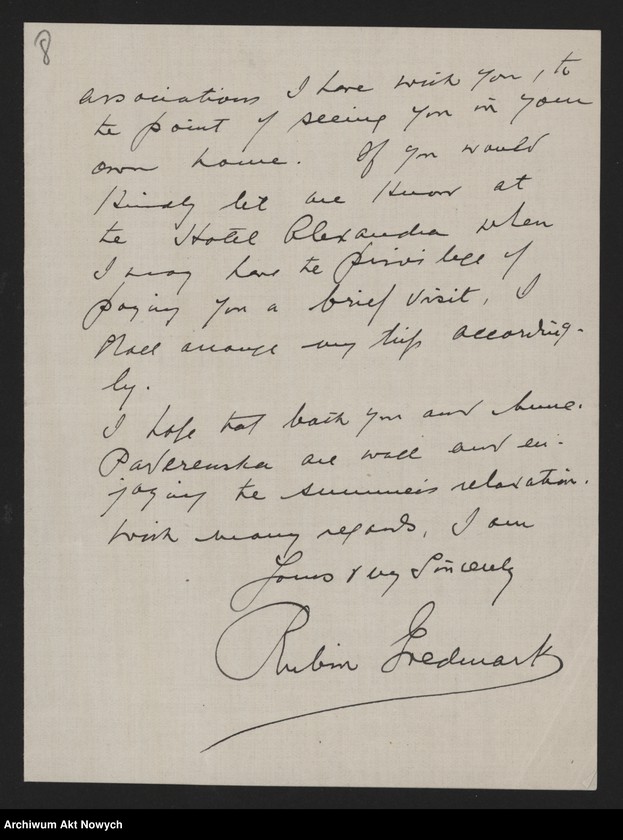 8
associations I have with you, to
the point of seeing you in your
own home. If you would
kindly let me know at
the Hotel Alexandra when
I may have the privilege of
paying you a brief visit, I
shall arrange my trip according-
ly.
I hope that both you and Mme.
Paderewska are well and en-
joying the summer's relaxation.
With many regards, I am
Yours very Sincerely
Rubin Goldmark
Archiwum Akt Nowych